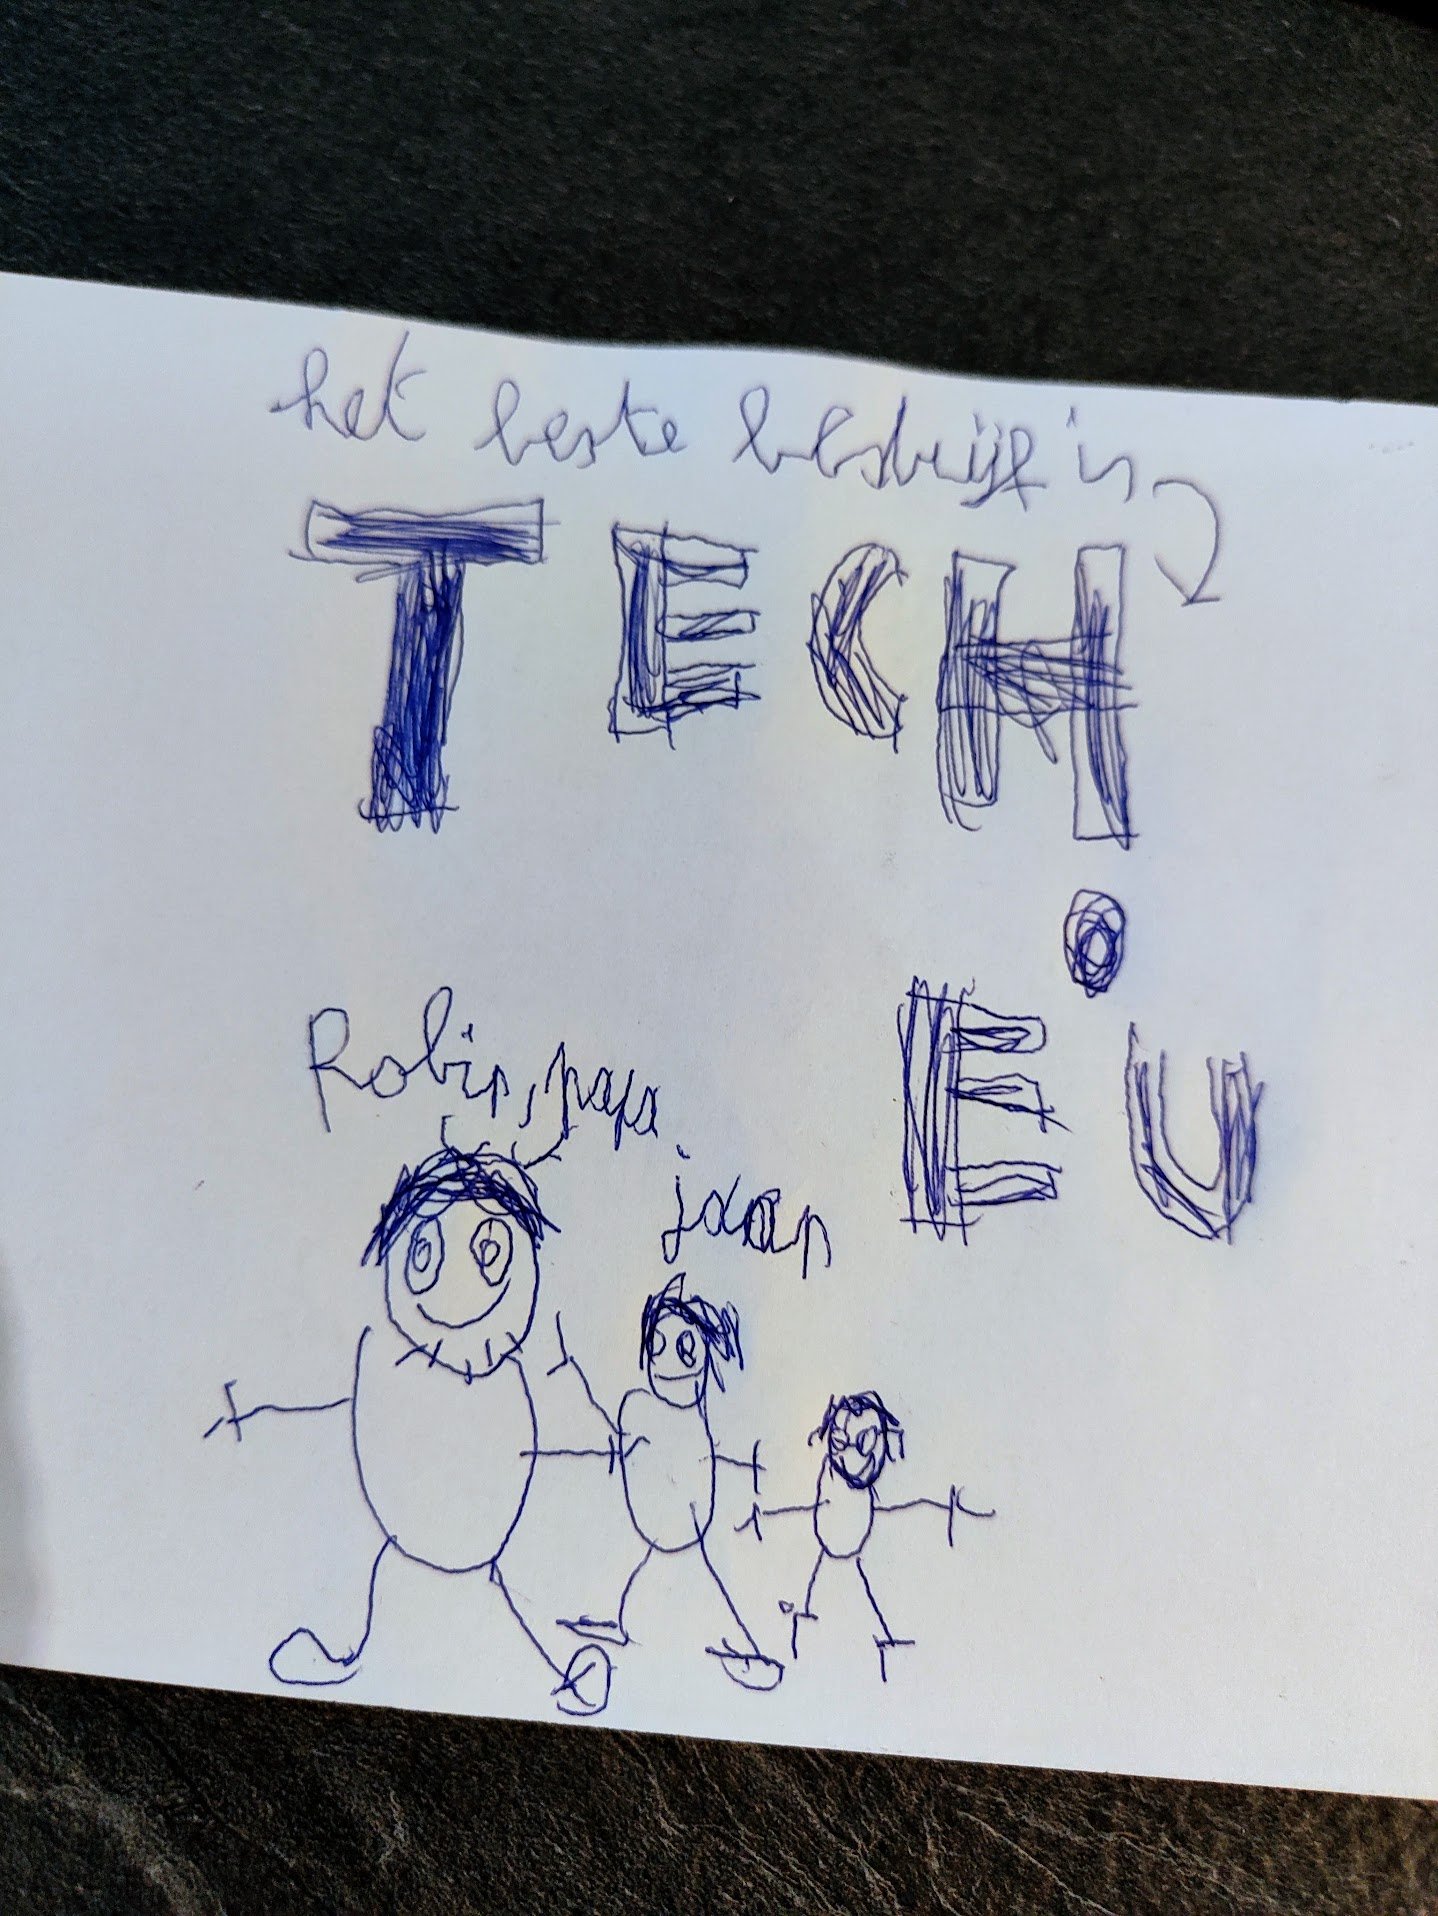 het beste bedrijf is
TECH
.
EU
Robin, papa
jaap